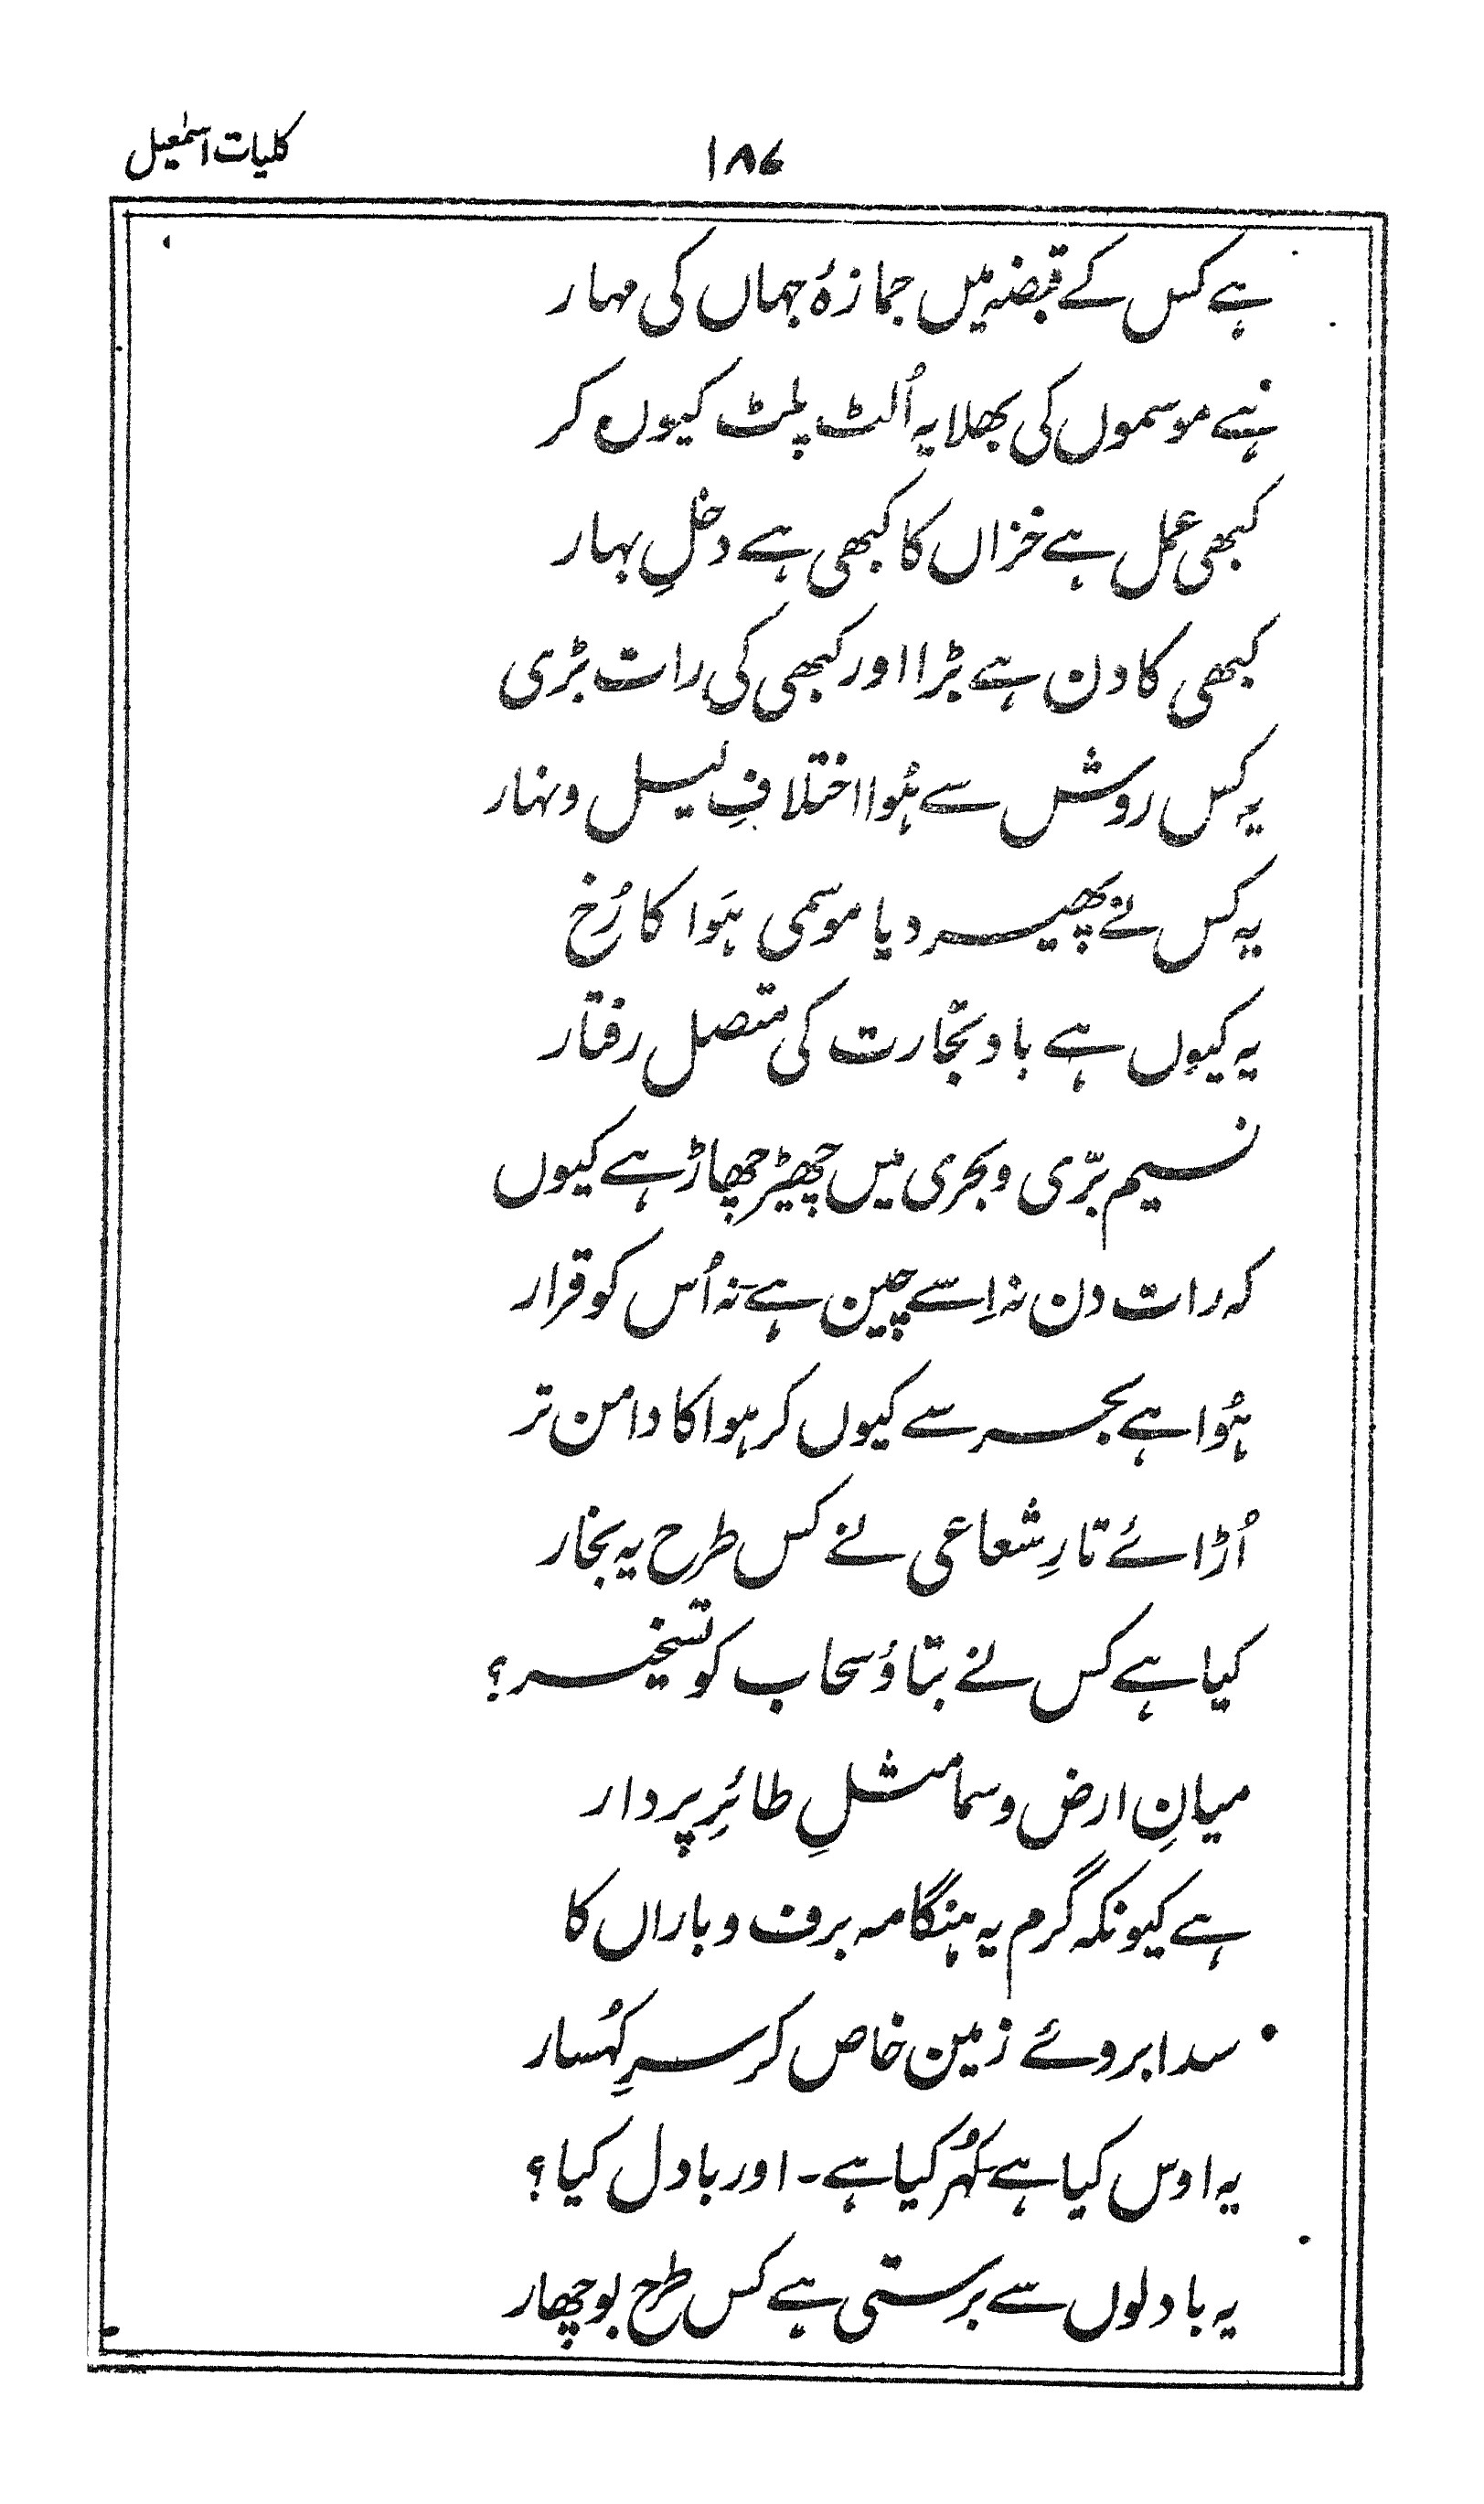 کلیات اسمٰعیل
۱۸۷
ہے کس کے قبضہ میں جمازۂ جہاں کی مہار
ہے موسموں کی بھلا یہ اُلٹ پلٹ کیوں کر
کبھی عمل ہے خزاں کا کبھی ہے دخلِ بہار
کبھی کا دن ہے بڑا اور کبھی کی رات بڑی
یہ کس روش سے ہُوا اختلافِ لیل و نہار
یہ کس نے پھیر دیا موسمی ہَوا کا رُخ
یہ کیوں ہے باد تجارت کی متصل رفتار
نسیم برّی و بحری میں چھیڑ چھاڑ ہے کیوں
کہ رات دن نہ اِسے چین ہے نہ اُس کو قرار
ہُوا ہے بحر سے کیوں کر ہوا کا دامن تر
اُڑائے تارِ شعاعی نے کس طرح یہ بخار
کیا ہے کس نے بتاؤ سحاب کو تسخیر؟
میانِ ارض و سما مثلِ طائرِ پردار
ہے کیونکہ گرم یہ ہنگامہ برف و باراں کا
سدا بروئے زمین خاص کر سرِ کہُسار
یہ اوس کیا ہے کہُر کیا ہے۔ اور بادل کیا؟
یہ بادلوں سے برستی ہے کس طرح بوچھار